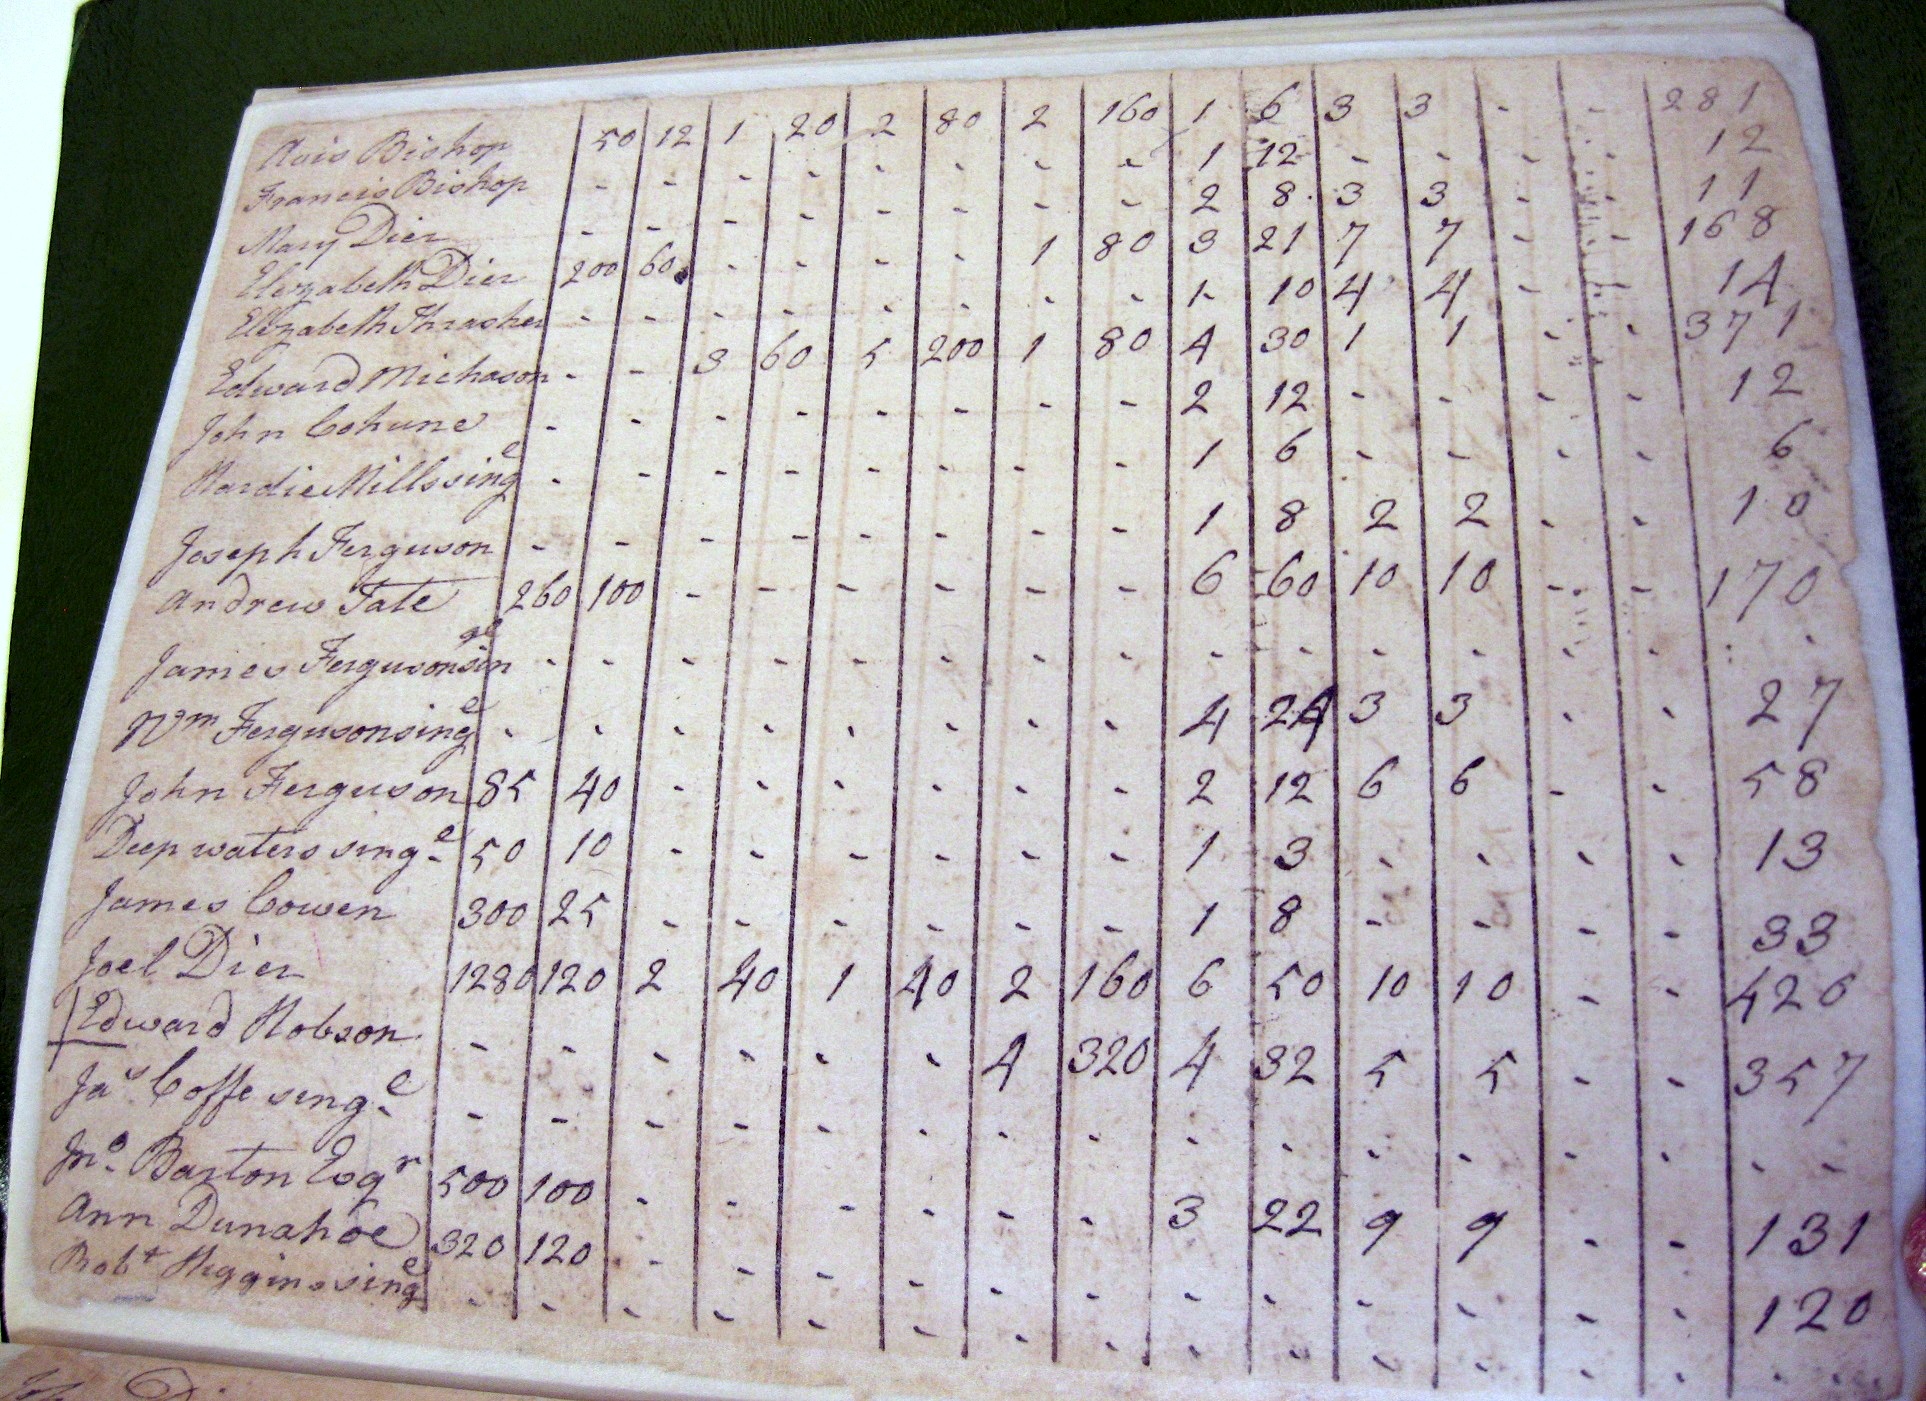 Avis Bishop 50 12 1 20 2 80 2 160 1 6 3 3 - - 281
Francis Bishop - - - - - - - - 1 12 - - - - 12
Mary Dier - - - - - - - - 2 8 3 3 - - 11
Elezabeth Dier 200 60 - - - - 1 80 3 21 7 7 - - 168
Elezabeth Thrasher - - - - - - - - 1 10 4 4 - - 14
Edward Michason - - 3 60 5 200 1 80 4 30 1 1 - - 371
John Cohune - - - - - - - - 2 12 - - - - 12
Hardie Mills singe - - - - - - - - 1 6 - - - - 6
Joseph Ferguson - - - - - - - - 1 8 2 2 - - 10
Andrew Tate 260 100 - - - - - - 6 60 10 10 - - 170
James Ferguson single - - - - - - - - - - - - - - -
Wm Ferguson singe - - - - - - - - 4 24 3 3 - - 27
John Ferguson 85 40 - - - - - - 2 12 6 6 - - 58
Deep waters singe 50 10 - - - - - - 1 3 - - - - 13
James Cowen 300 25 - - - - - - 1 8 - - - - 33
Joel Dier 1280 120 2 40 1 40 2 160 6 50 10 10 - - 420
Edward Hobson - - - - - - 4 320 4 32 5 5 - - 357
Jas Coffe singe - - - - - - - - - - - - - - - -
Jno Barton Esqr 500 100 - - - - - - 3 22 9 9 - - 131
Ann Dunahoe 320 120 - - - - - - - - - - - - 120
Robt Higgins singe - - - - - - - - - - - - - - - -